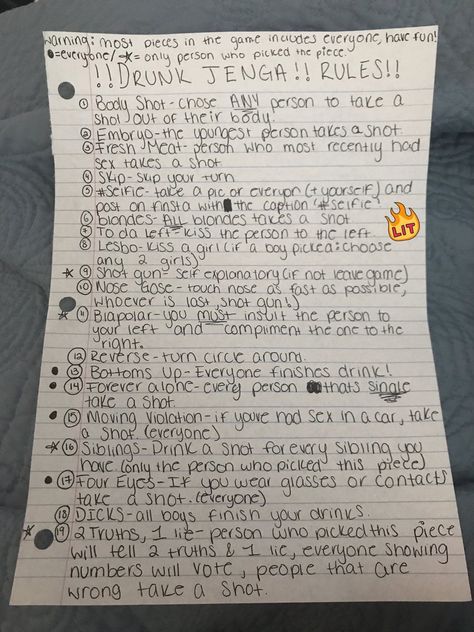 warning: most pieces in the game includes everyone, have fun!
●=everyone/ ☆= only person who picked the piece.
!!DRUNK JENGA!! RULES!!
① Body Shot- chose ANY person to take a
shot out of their body!
② Embryo- the youngest person takes a shot
③ Fresh Meat- person who most recently had
sex takes a shot
④ Skip- skip your turn
⑤ #Selfie- take a pic or everyon (+yourself) and
post on finsta with the caption "#selfie"
⑥ blondes- ALL blondes takes a shot
⑦ To da left- kiss the person to the left.
LIT
⑧ Lesbo- kiss a girl (if a boy picked: choose
any 2 girls)
☆ ⑨ Shot gun- self explanatory (if not leave game)
⑩ Nose Gose- touch nose as fast as possible,
whoever is last, shot gun!)
☆ ⑪ Biapolar- you must insult the person to
your left and compliment the one to the
right.
⑫ Reverse- turn circle around.
● ⑬ Bottoms Up- Everyone finishes drink!
● ⑭ Forever alone- every person thats single
take a shot.
● ⑮ Moving Violation- if youve had sex in a car, take
a shot. (everyone)
☆ ⑯ Siblings- Drink a shot for every sibling you
have (only the person who picked this piece)
● ⑰ Four Eyes- If you wear glasses or contacts
take a shot. (everyone)
⑱ DICKS- all boys finish your drinks.
☆ ⑲ 2 Truths, 1 lie- person who picked this piece
will tell 2 truths & 1 lie, everyone showing
numbers will vote, people that are
wrong take a shot.